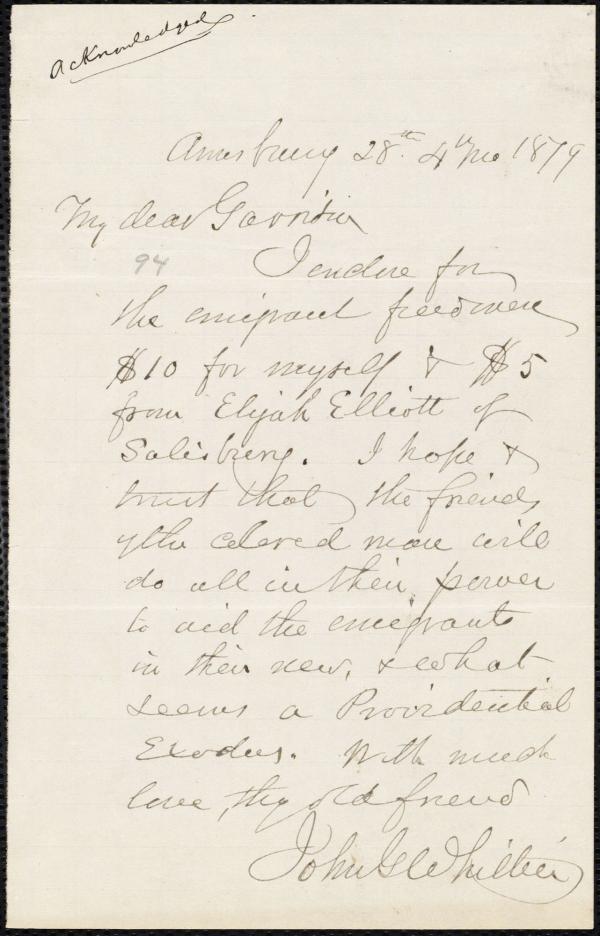 Acknowledged
Amesbury 28th 4th Mo 1879
My dear Garrison
94
I enclose for
the emigrant freedmen
$10 for myself & $5
from Elijah Elliott of
Salisbury. I hope &
trust that the friends
of the colored man will
do all in their power
to aid the emigrants
in their new, & what
seems a Providential
Exodus. With much
love, thy old friend
John G Whittier